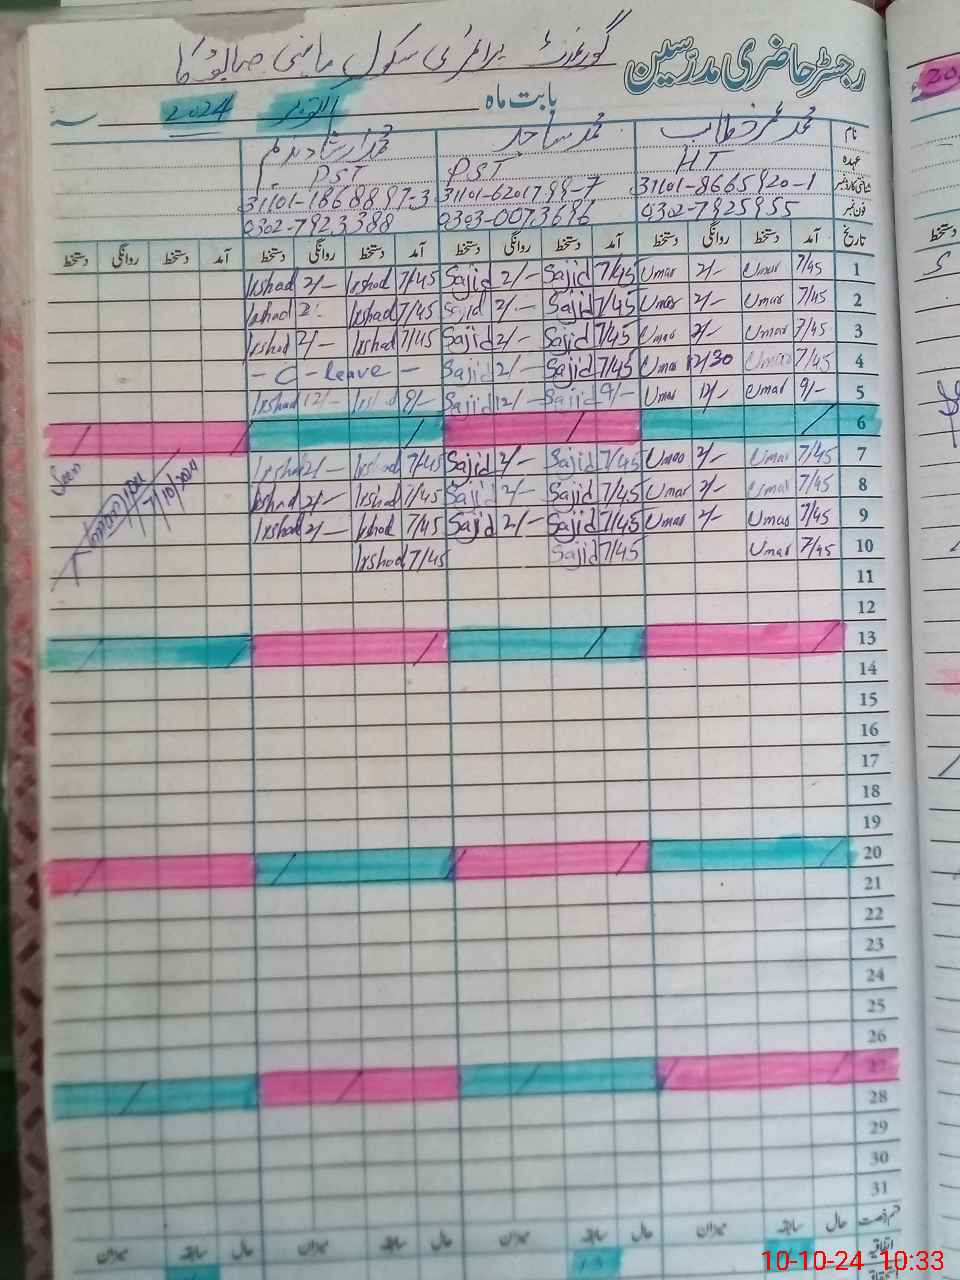 رجسٹر حاضری مدرسین گورنمنٹ پرائمری سکول
بابت ماہ اکتوبر 2024ء
نام محمد عمر خطاب محمد ساجد محمد ارشاد ندیم
عہدہ HT PST PST
شناختی کارڈ نمبر 31101-8665920-1 31101-6201799-7 31101-1868897-3
فون نمبر 0302-7925955 0303-0073696 0302-7923388
تاریخ آمد دستخط روانگی دستخط آمد دستخط روانگی دستخط آمد دستخط روانگی دستخط آمد دستخط روانگی دستخط
Irshad 2/- Irshad 7/45 Sajid 2/- Sajid 7/45 Umar 2/- Umar 7/45 1
Irshad 2- Irshad 7/45 Sajid 2/- Sajid 7/45 Umar 2/- Umar 7/45 2
Irshad 2/- Irshad 7/45 Sajid 2/- Sajid 7/45 Umar 2/- Umar 7/45 3
- C - leave - Sajid 2/- Sajid 7/45 Umar 12/30 Umar 7/45 4
Irshad 12/- Irshad 9/- Sajid 12/- Sajid 9/- Umar 12/- Umar 9/- 5
6
Seen Irshad 2/- Irshad 7/45 Sajid 2/- Sajid 7/45 Umar 2/- Umar 7/45 7
7/10/2024 Irshad 2/- Irshad 7/45 Sajid 2/- Sajid 7/45 Umar 2/- Umar 7/45 8
Irshad 2/- Irshad 7/45 Sajid 2/- Sajid 7/45 Umar 2/- Umar 7/45 9
Irshad 7/45 Sajid 7/45 Umar 7/45 10
11
12
13
14
15
16
17
18
19
20
21
22
23
24
25
26
27
28
29
30
31
قسم رخصت حال سابقہ میزان حال سابقہ میزان حال سابقہ میزان حال سابقہ میزان
اتفاقیہ
10-10-24 10:33